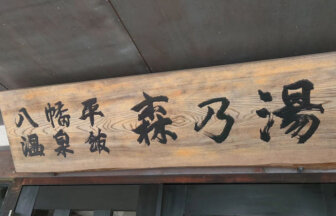 八幡平
温泉館
森乃湯